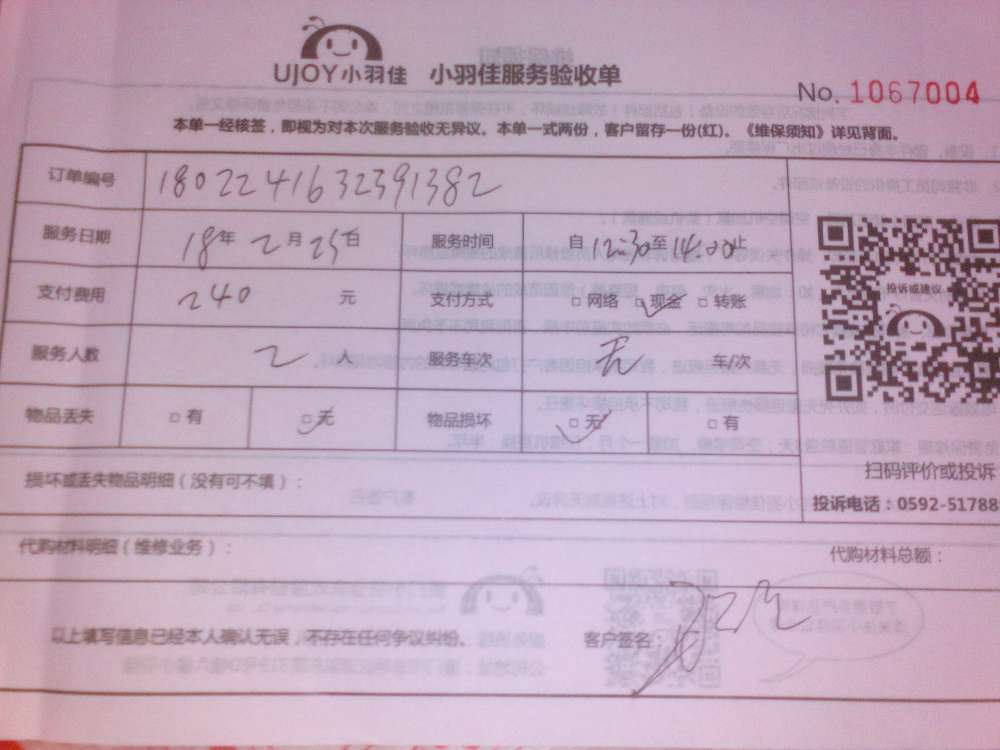 UJOY小羽佳 小羽佳服务验收单
No. 1067004
本单一经核签，即视为对本次服务验收无异议。本单一式两份，客户留存一份(红)。《维保须知》详见背面。
订单编号 1802241632391382
服务日期 18年2月25日 服务时间 自12:30至14:00止
支付费用 240 元 支付方式 □网络 □现金 □转账
服务人数 2 人 服务车次 无 车/次
物品丢失 □有 □无 物品损坏 □无 □有
投诉或建议
扫码评价或投诉
损坏或丢失物品明细（没有可不填）：
投诉电话：0592-51788
代购材料明细（维修业务）： 代购材料总额：
以上填写信息已经本人确认无误，不存在任何争议纠纷。 客户签名：